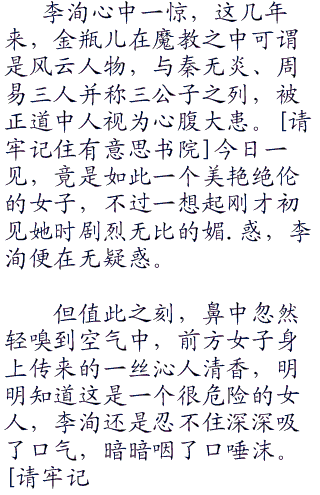 李洵心中一惊，这几年
来，金瓶儿在魔教之中可谓
是风云人物，与秦无炎、周
易三人并称三公子之列，被
正道中人视为心腹大患。[请
牢记住有意思书院]今日一
见，竟是如此一个美艳绝伦
的女子，不过一想起刚才初
见她时剧烈无比的媚.惑，李
洵便在无疑惑。
但值此之刻，鼻中忽然
轻嗅到空气中，前方女子身
上传来的一丝沁人清香，明
明知道这是一个很危险的女
人，李洵还是忍不住深深吸
了口气，暗暗咽了口唾沫。
[请牢记